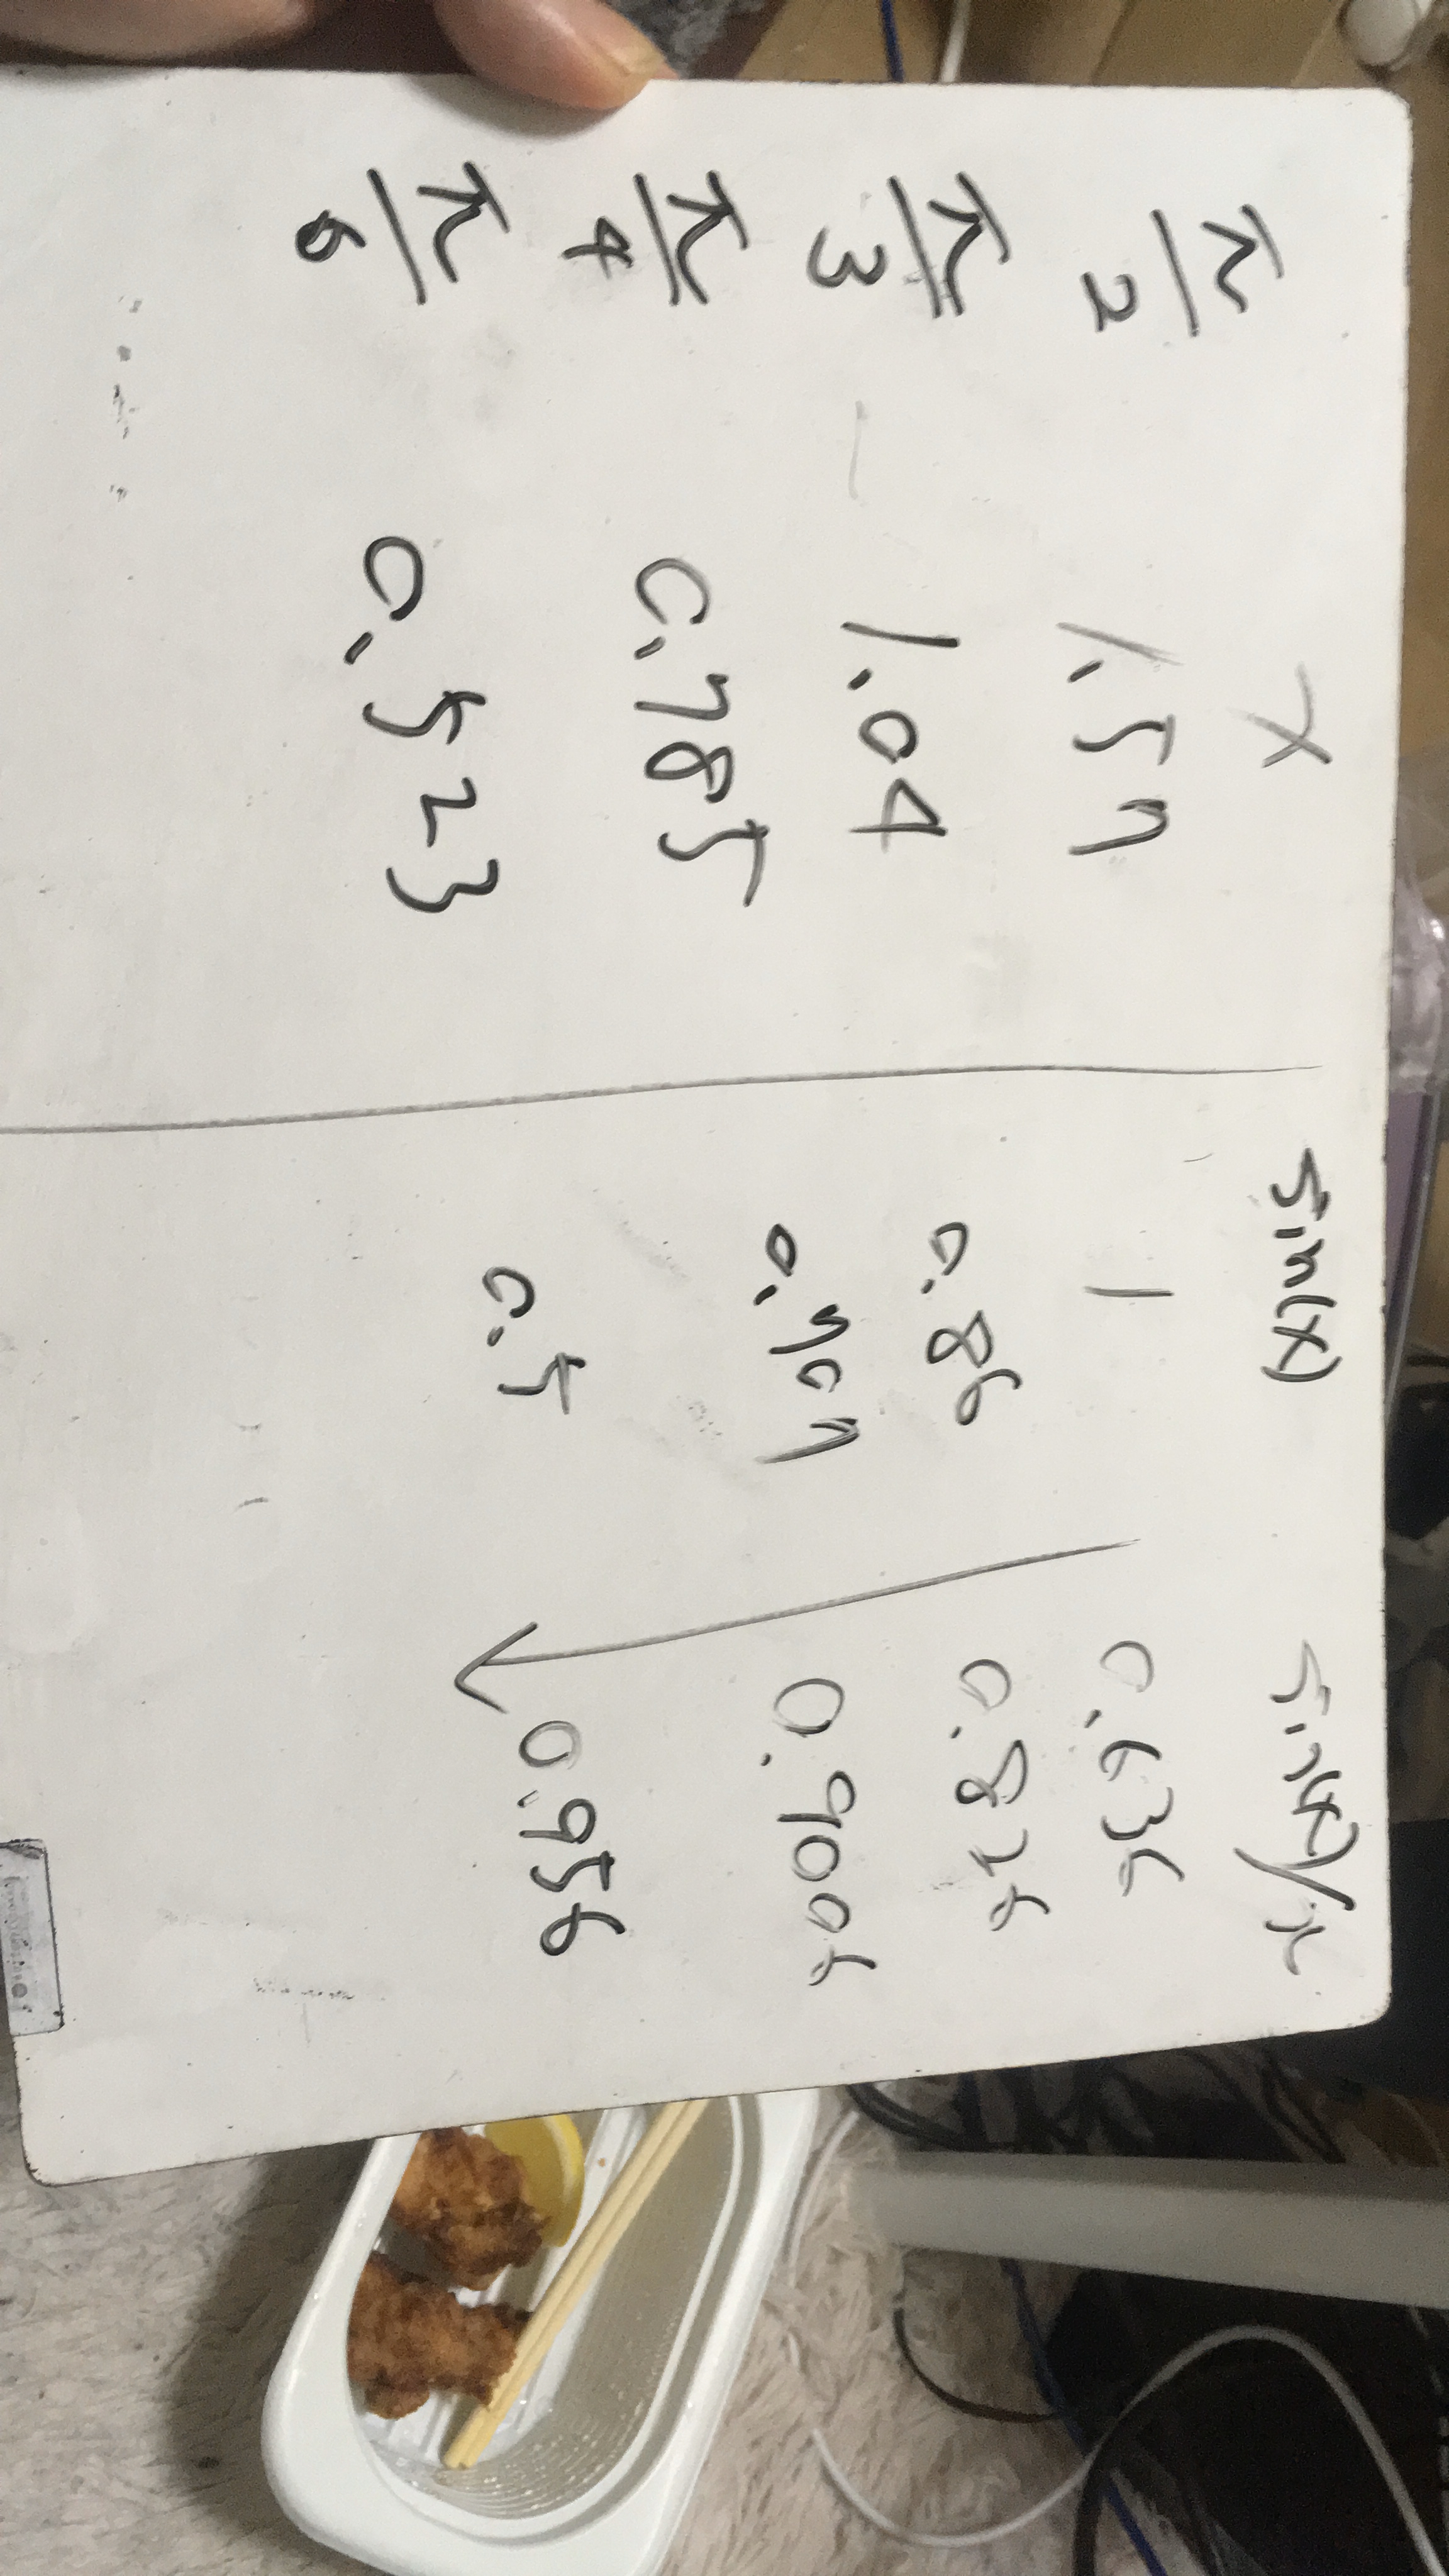 x sin(x) sin(x)/x
π/2 1.57 1 0.636
π/3 1.04 0.86 0.826
π/4 0.785 0.707 0.906
π/6 0.523 0.5 0.956